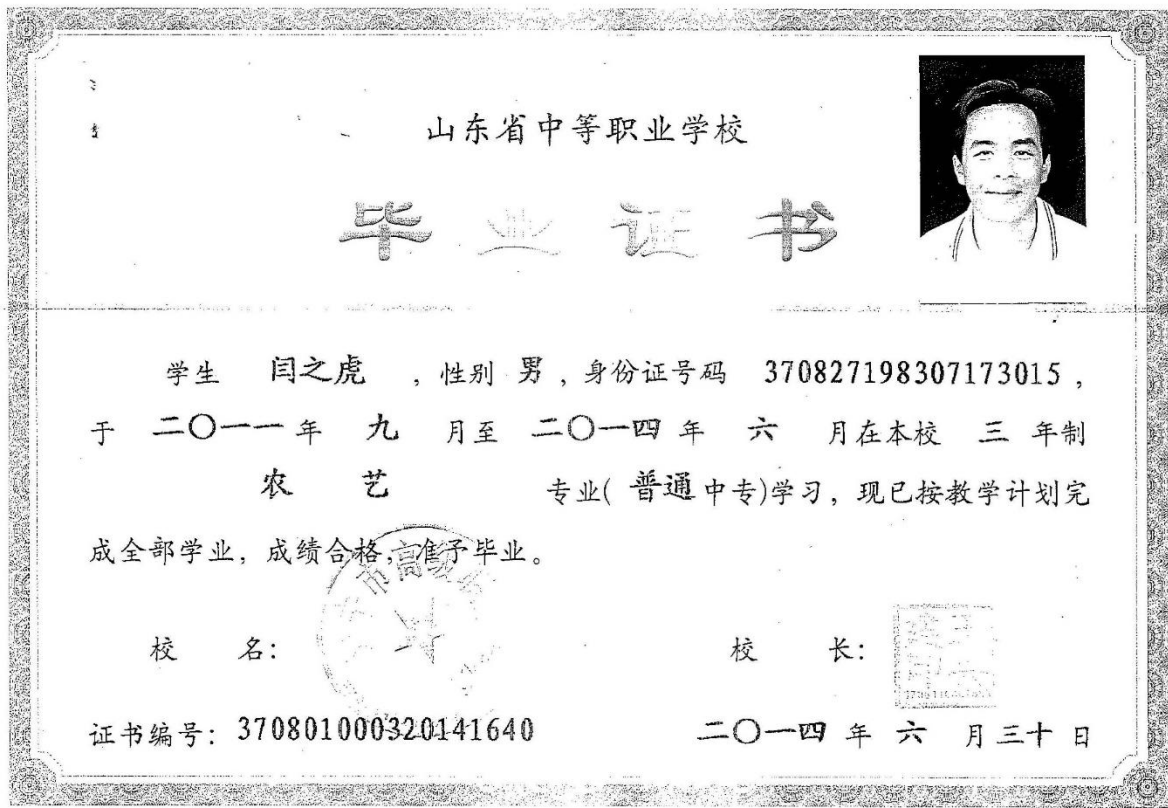 山东省中等职业学校
毕业证书
学生 闫之虎 ，性别 男 ，身份证号码 370827198307173015 ，
于 二〇一一 年 九 月至 二〇一四 年 六 月在本校 三 年制
农 艺 专业( 普通 中专)学习，现已按教学计划完
成全部学业，成绩合格，准予毕业。
市高级
校 名： 校 长：
证书编号：370801000320141640 二〇一四 年 六 月 三十 日